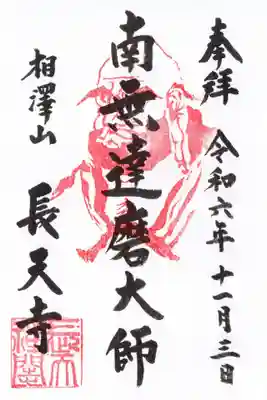 奉拝 令和六年十一月三日
南無達磨大師
相澤山 長天寺